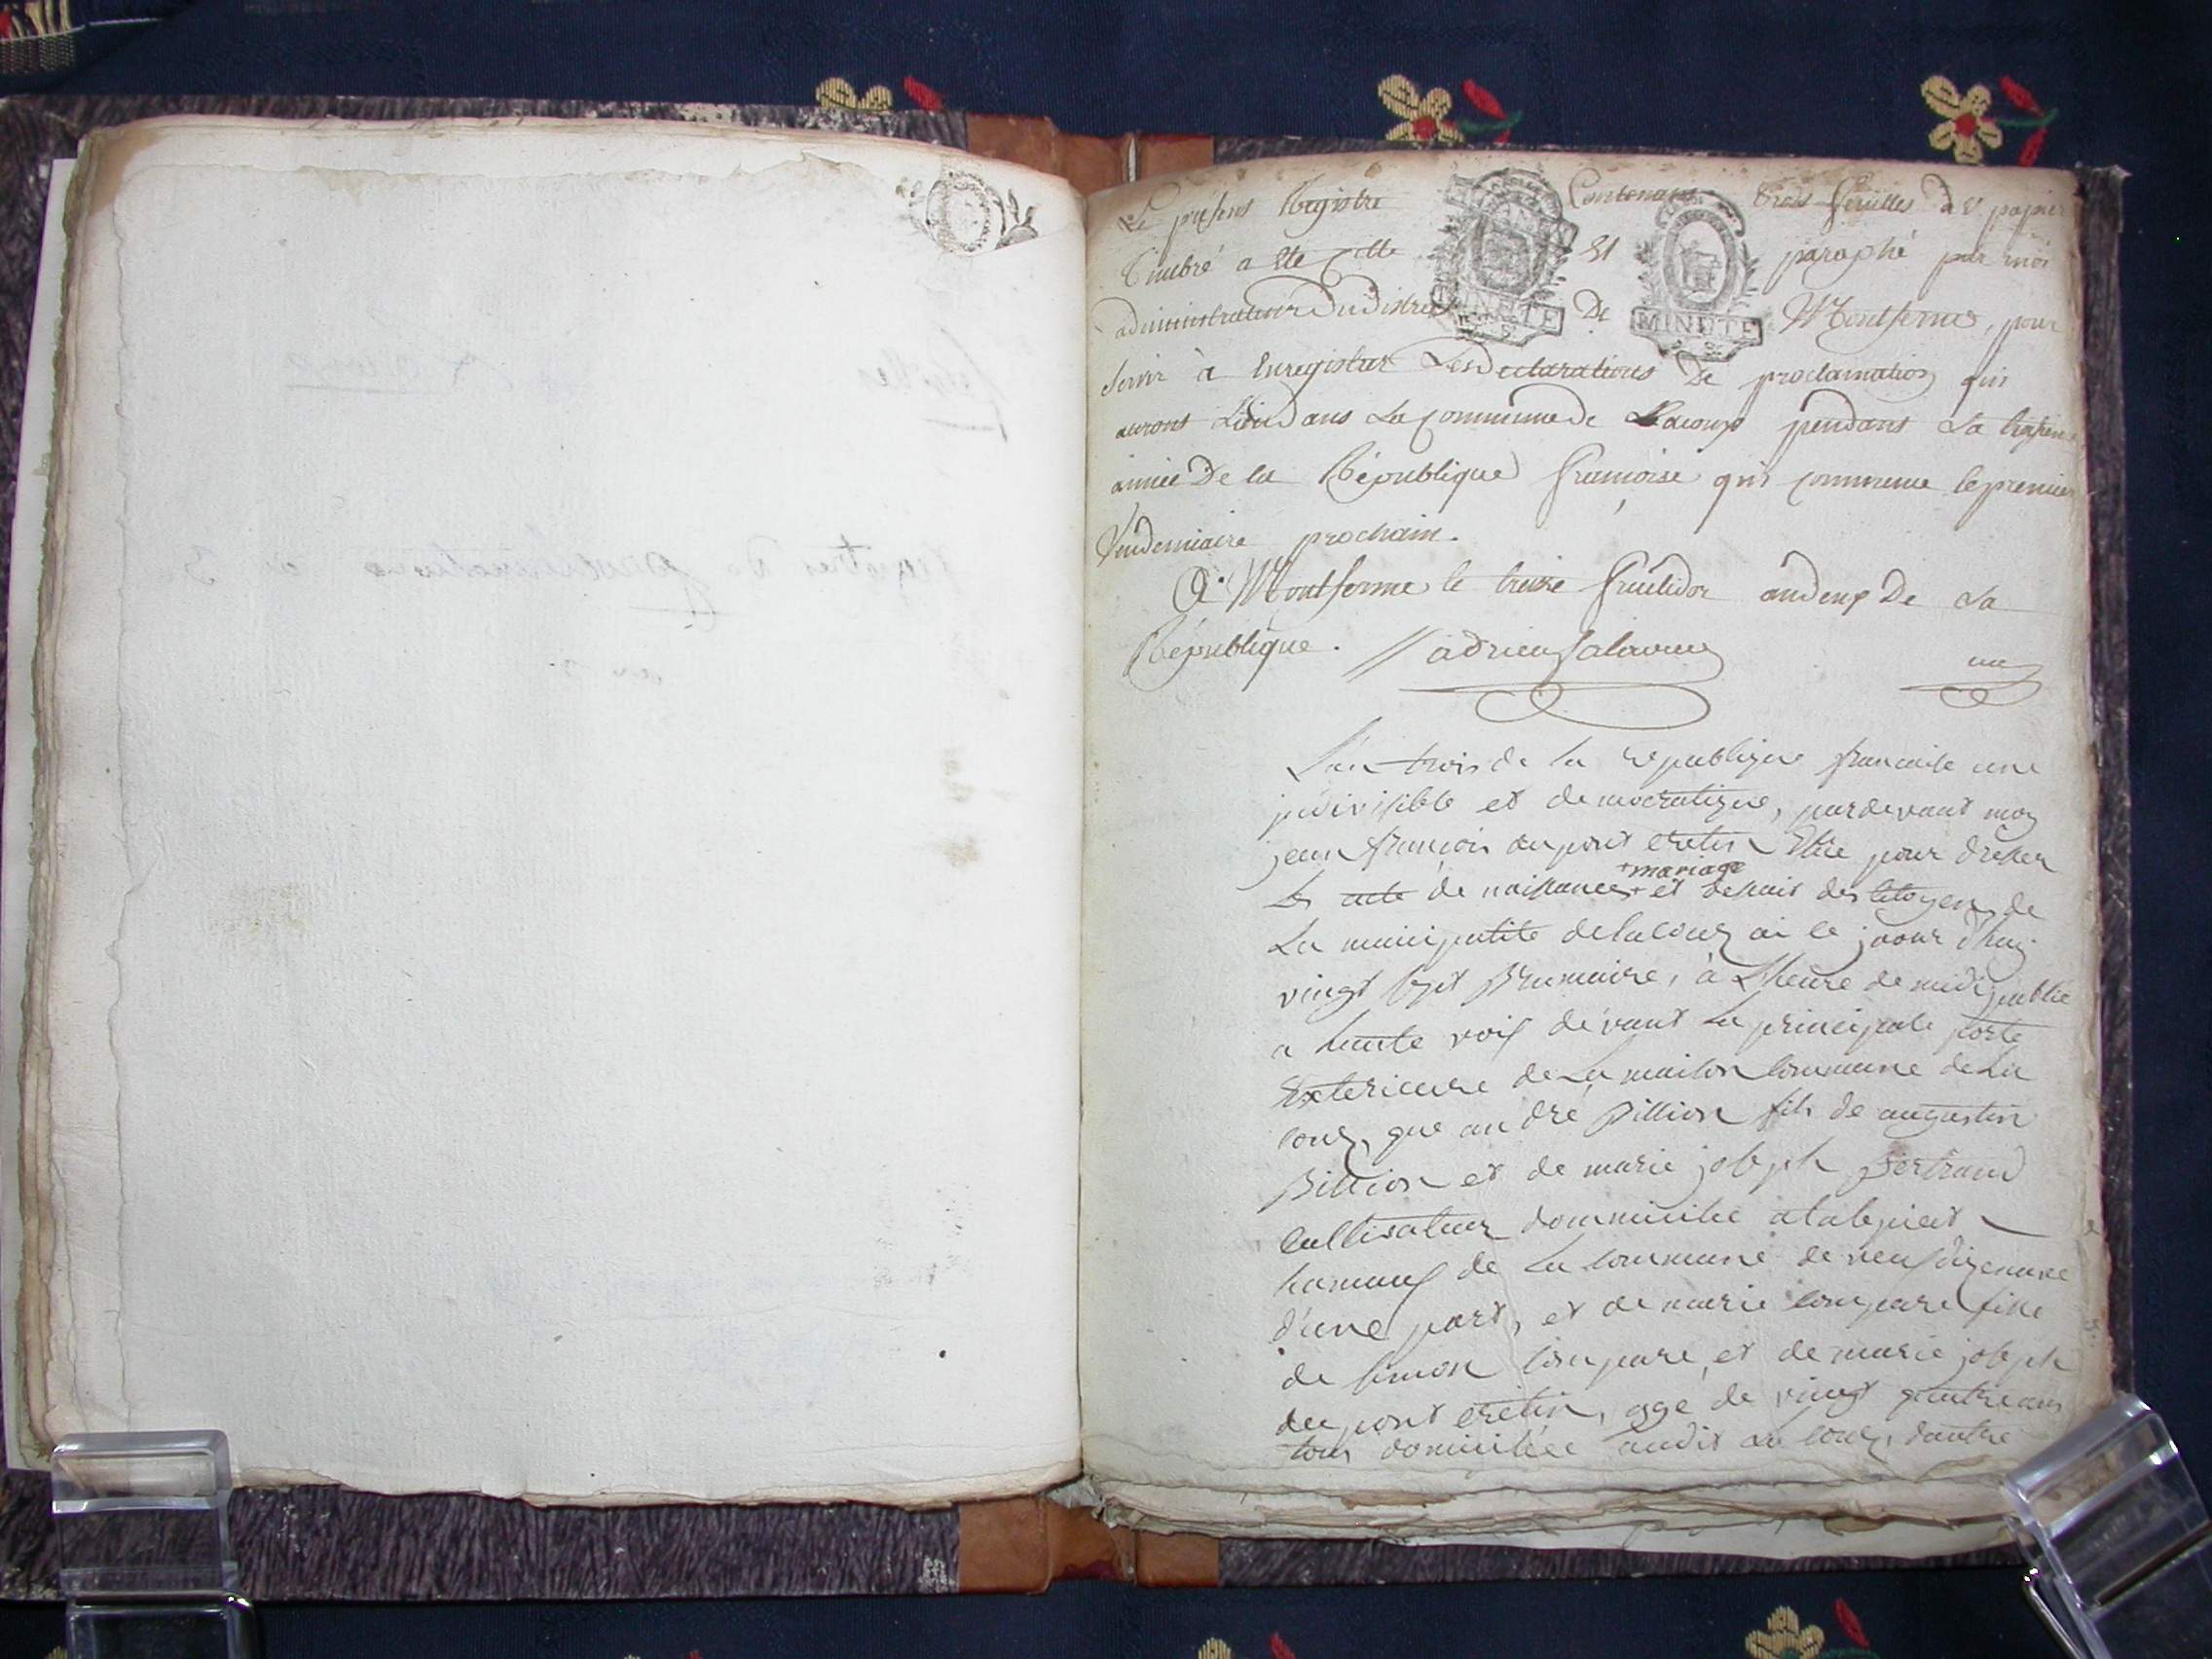 Le présent Registre Contenant trois feuilles de papier
Timbré a été Cotté Et paraphé par moi
administrateur Du district De Montferme, pour
servir à Enregistrer Les Declarations De proclamation qui
auront Lieu Dans La Commune de Lacoux pendant La troisieme
année De la République françoise qui commence le premier
Vendemiaire prochain.
A Montferme le treize fructidor an deux De La
République. adrien
une
MINUTE
MINUTE
L'an trois de la republique francaise une
indivisible et democratique, pardevant moy
jean francois dupont cretin Elue pour dresser
+ mariage
les acte de naissances + et desais des Citoyens de
La municipalité de lacoux ai ce jourd'huy
vingt sept Brumaire, à L'heure de midi publié
a haute voix devant La principale porte
Exterieure de La maison Commune de La
coux, que andré Billion fils de augustin
Billion et de marie joseph Bertrand
Cultivateur dommicilié
hamaux de La Commune de
d'une part, et de marie Compare fille
de simon Compare, et de marie joseph
du pont cretin, agge de vingt quatre ans
tous domiciliée audit La coux, dautre